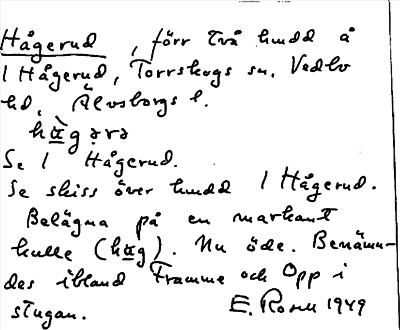 Hågerud, förr två hudd å
1 Hågerud, Torrskogs sn. Vedbo
hd, Älvsborgs l.
hὰgərə
Se 1 Hågerud.
Se skiss över hudd 1 Hågerud.
Belägna på en markant
kulle (hɑg). Nu öde. Benämn-
des ibland Framme och Opp i
stugan. E. Rosell 1949